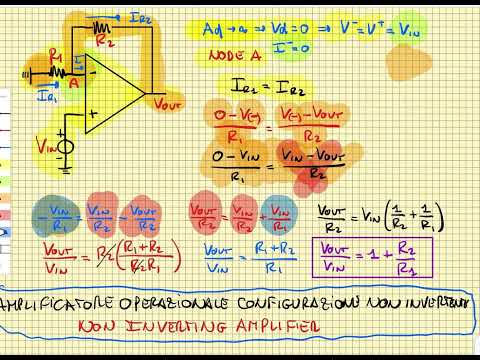 IR2
R2
R1
A
I⁻
IR1
−
+
VOUT
VIN
+
Ad→∞ ⇒ Vd=0 ⇒ V⁻=V⁺=VIN
I⁻=0
NODE A
IR1 = IR2
(0−V(−))/R1 = (V(−)−VOUT)/R2
(0−VIN)/R1 = (VIN−VOUT)/R2
−VIN/R1 = VIN/R2 − VOUT/R2
VOUT/R2 = VIN/R2 + VIN/R1
VOUT/R2 = VIN(1/R2 + 1/R1)
VOUT/VIN = R2((R1+R2)/(R2R1))
VOUT/VIN = (R1+R2)/R1
VOUT/VIN = 1 + R2/R1
AMPLIFICATORE OPERAZIONALE CONFIGURAZIONE NON INVERTENTE
NON INVERTING AMPLIFIER